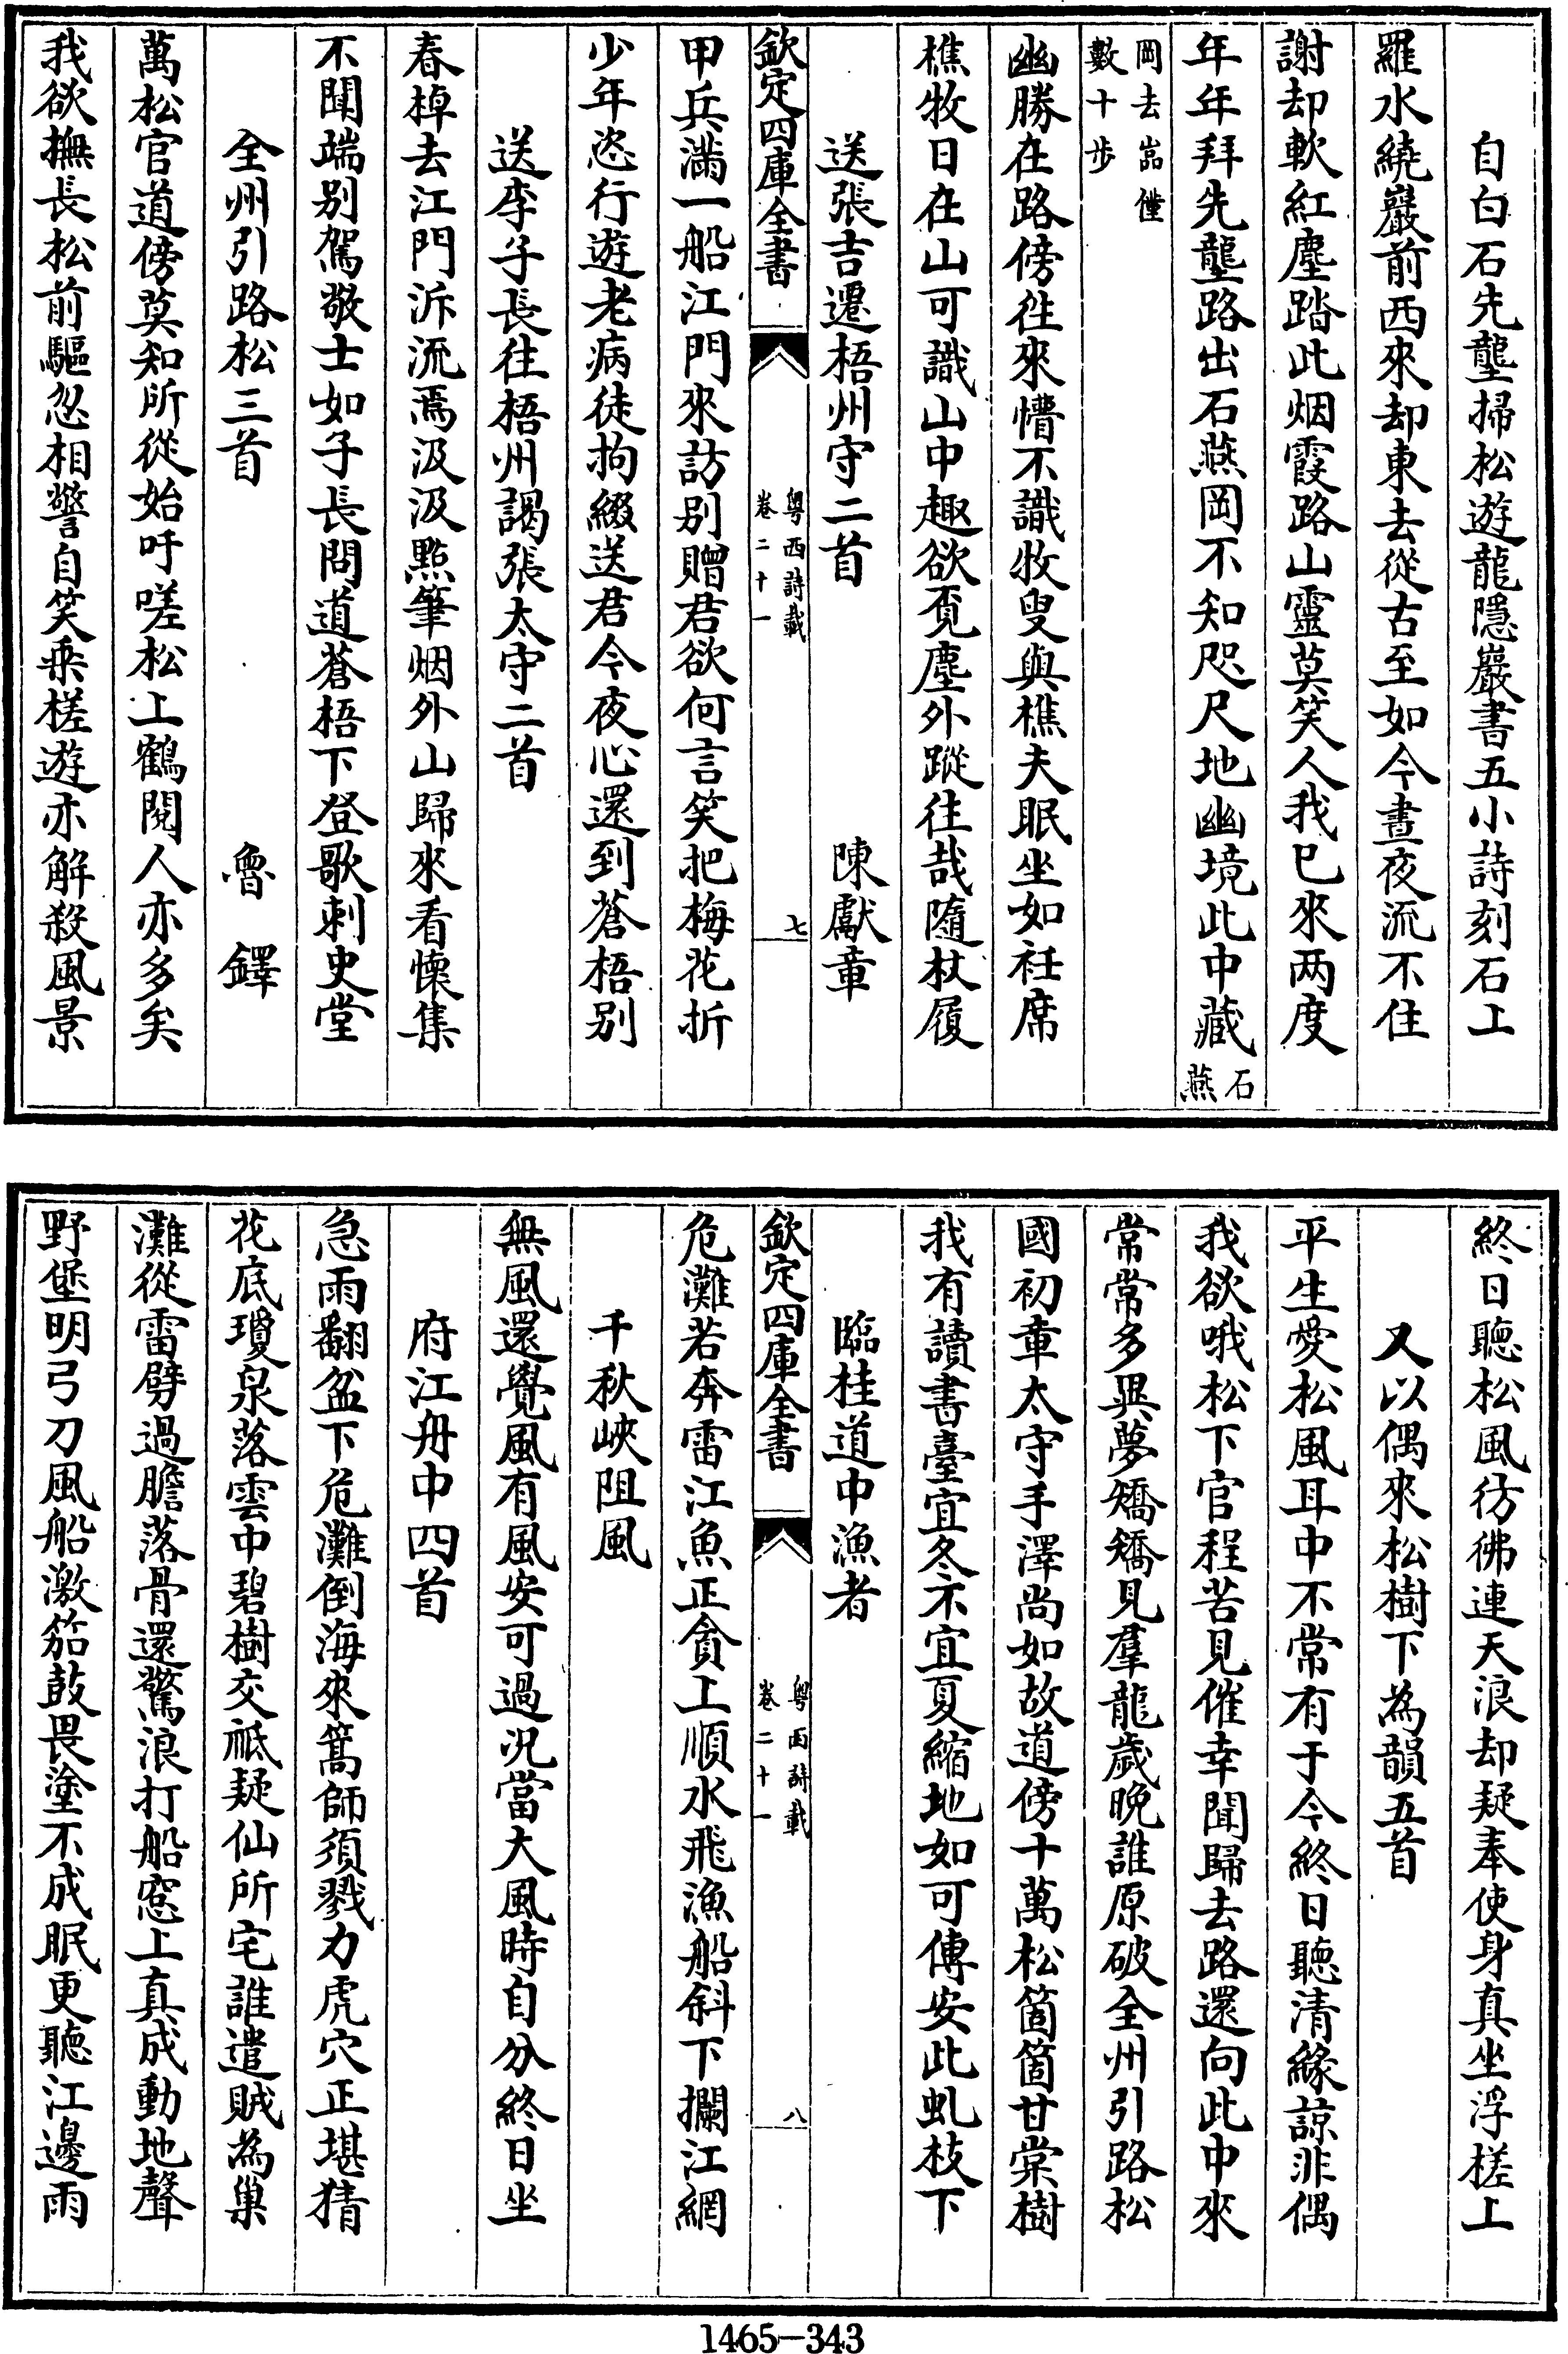 自白石先壟掃松遊龍隱巖書五小詩刻石上
羅水繞巖前西來却東去從古至如今晝夜流不住
謝却軟紅塵踏此烟霞路山靈莫笑人我已來兩度
年年拜先壟路出石燕岡不知咫尺地幽境此中藏石燕
岡去嵓僅數十步
幽勝在路傍徃來懵不識牧叟與樵夫眠坐如衽席
樵牧日在山可識山中趣欲覔塵外蹤往哉隨杖履
送張吉遷梧州守二首 陳獻章
欽定四庫全書 粵西詩載卷二十一 七
甲兵滿一船江門來訪别贈君欲何言笑把梅花折
少年恣行遊老病徒拘綴送君今夜心還到蒼梧别
送李子長往梧州謁張太守二首
春棹去江門泝流焉汲汲㸃筆烟外山歸來看懷集
不聞端别駕敬士如子長問道蒼梧下登歌刺史堂
全州引路松三首 魯鐸
萬松官道傍莫知所從始吁嗟松上鶴閱人亦多矣
我欲撫長松前驅忽相警自笑乘槎遊亦解殺風景
終日聽松風彷彿連天浪却疑奉使身真坐浮槎上
又以偶來松樹下為韻五首
平生愛松風耳中不常有于今終日聽清緣諒非偶
我欲哦松下官程苦見催幸聞歸去路還向此中來
常常多異夢矯矯見羣龍歲晚誰原破全州引路松
國初章太守手澤尚如故道傍十萬松箇箇甘棠樹
我有讀書臺宜冬不宜夏縮地如可傳安此虬枝下
臨桂道中漁者
欽定四庫全書 粵西詩載卷二十一 八
危灘若奔雷江魚正貪上順水飛漁船斜下攔江網
千秋峽阻風
無風還覺風有風安可過况當大風時自分終日坐
府江舟中四首
急雨翻盆下危灘倒海來篙師須戮力虎穴正堪猜
花底瓊泉落雲中碧樹交祗疑仙所宅誰遣賊為巢
灘從雷劈過膽落骨還驚浪打船窓上真成動地聲
野堡明弓刀風船激笳鼓畏塗不成眠更聽江邊雨
1465-343